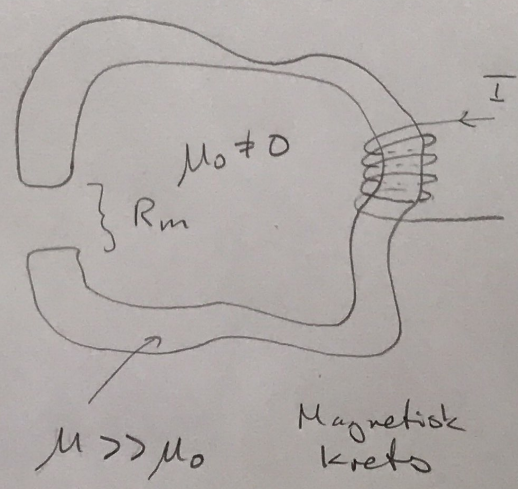 I
μ₀ ≠ 0
Rm
μ >> μ₀
Magnetisk
krets